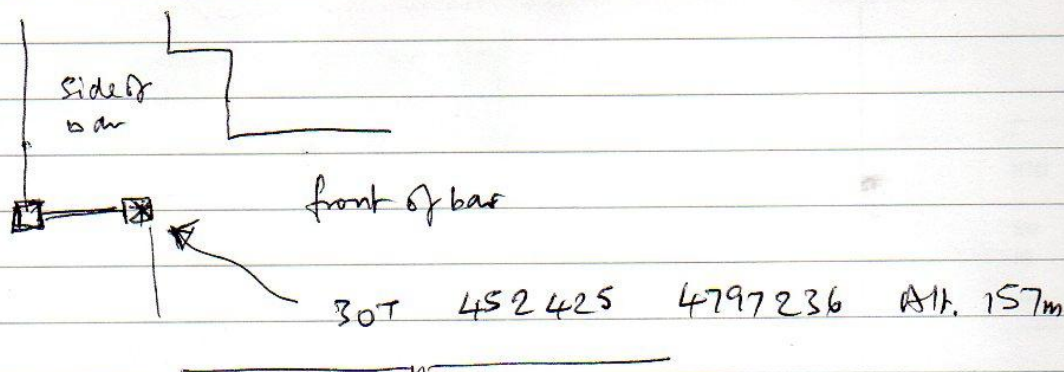 side of
bar
front of bar
30T 452425 4797236 Alt. 157m